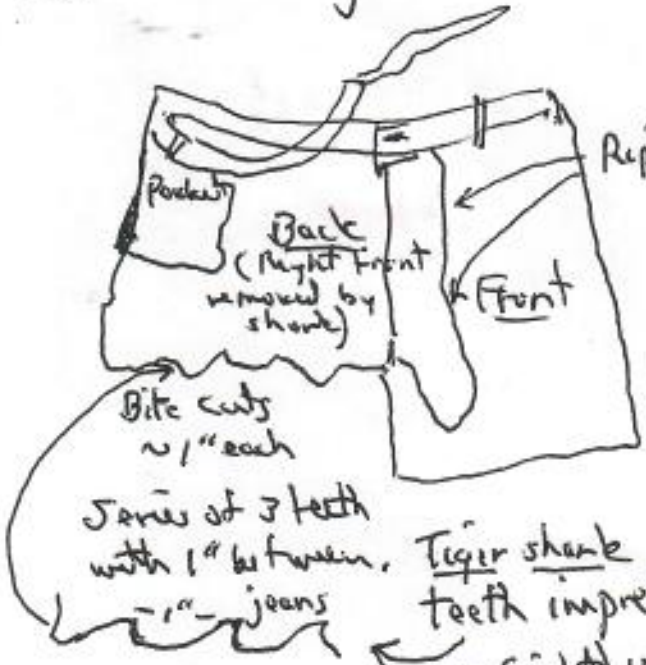 Rip
Pocket
Back
(Right Front
removed by
shark)
Front
Bite cuts
~ 1" each
Series of 3 teeth
with 1" between.
~1"~ jeans
Tiger shark
teeth impre